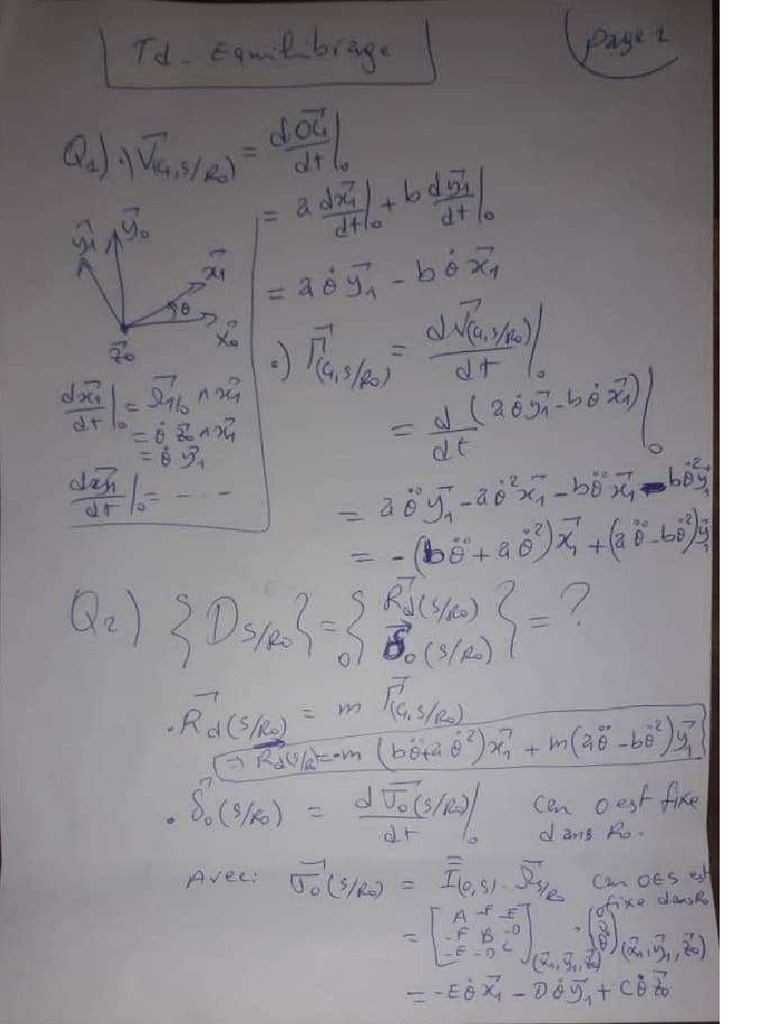 Td - Equilibrage
page 1
Q1) •) V⃗(G,S/R0) = dOG⃗/dt|0
= a dx⃗1/dt|0 + b dy⃗1/dt|0
= a θ̇ y⃗1 - b θ̇ x⃗1
y⃗1 y⃗0 x⃗1 θ x⃗0 z⃗0
dx⃗1/dt|0 = Ω⃗1/0 ∧ x⃗1
= θ̇ z⃗0 ∧ x⃗1
= θ̇ y⃗1
dy⃗1/dt|0 = - - - -
•) Γ⃗(G,S/R0) = dV⃗(G,S/R0)/dt|0
= d/dt (a θ̇ y⃗1 - b θ̇ x⃗1)|0
= a θ̈ y⃗1 - a θ̇² x⃗1 - b θ̈ x⃗1 - b θ̇² y⃗1
= - (b θ̈ + a θ̇²) x⃗1 + (a θ̈ - b θ̇²) y⃗1
Q2) {D S/R0} = 0{R⃗d(S/R0) δ⃗0(S/R0)} = ?
• R⃗d(S/R0) = m Γ⃗(G,S/R0)
⇒ R⃗d(S/R) = -m (b θ̈ + a θ̇²) x⃗1 + m (a θ̈ - b θ̇²) y⃗1
• δ⃗0(S/R0) = dσ⃗0(S/R0)/dt|0 car O est fixe
dans R0.
Avec: σ⃗0(S/R0) = I̿(O,S) . Ω⃗S/R0 car O∈S est
fixe dans R0
= [A -F -E
-F B -D
-E -D C](x⃗1,y⃗1,z⃗0) . (0 0 θ̇)(x⃗1,y⃗1,z⃗0)
= -E θ̇ x⃗1 - D θ̇ y⃗1 + C θ̇ z⃗0